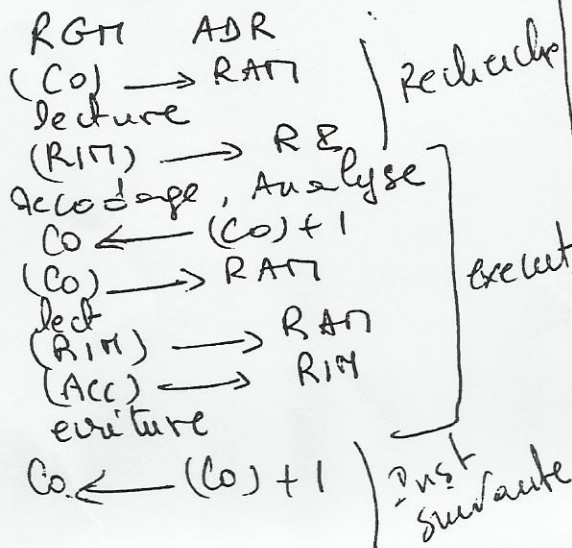 RGM ADR
(Co) → RAM
lecture
(RIM) → RI
Decodage, Analyse
Co ← (Co) + 1
(Co) → RAM
lect
(RIM) → RAM
(Acc) → RIM
ecriture
Co ← (Co) + 1
Recherche
execut
Inst
suivante